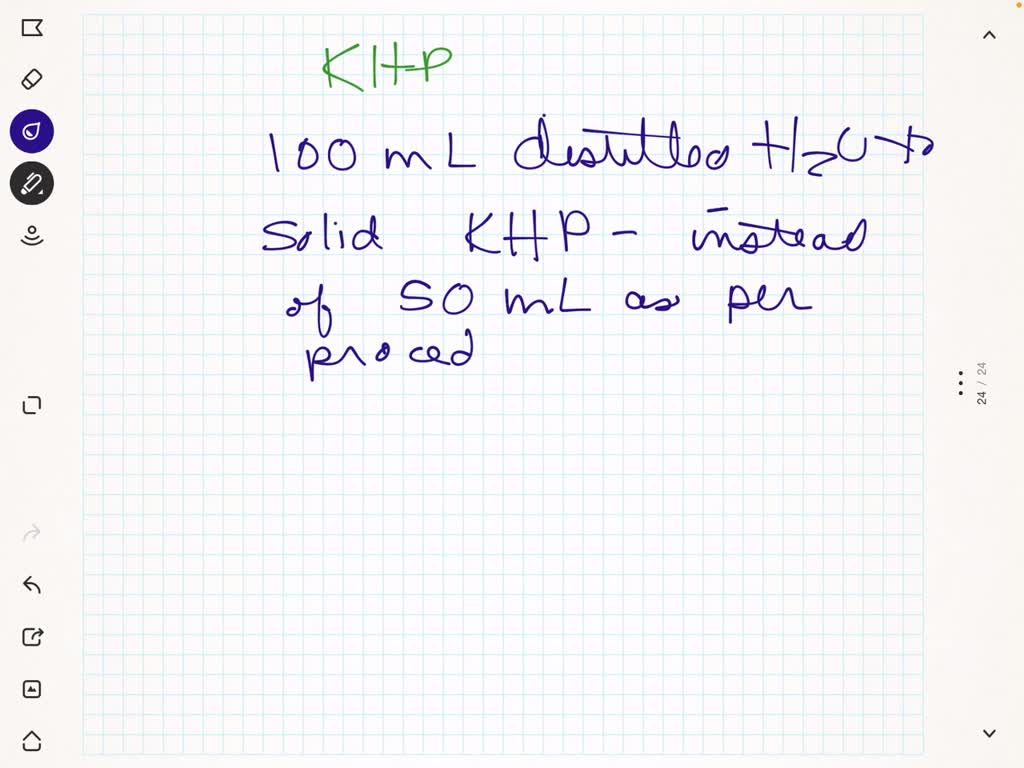 KHP
100 mL distilled H₂O to
Solid KHP - instead
of 50 mL as per
proced
24 / 24